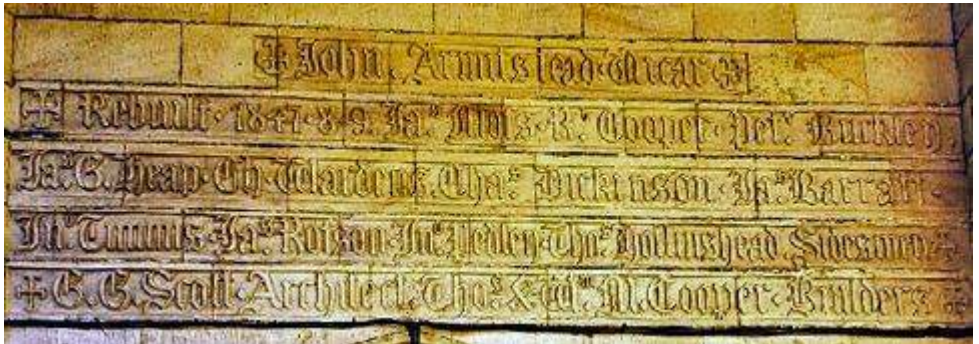 ✠ John Armistead · Vicar ✠
✠ Rebuilt · 1847·8·9. Jas · Rd Cooper · Petr Burkley.
Jas G. Heap · Ch · Wardens. Chas Dickinson · Jas Barratt ·
Timmis · Jas Robson · Jno Thos Hollinshead Sidesmen ✠
✠ G. G. Scott · Architect. Thos & Wm M. Cooper · Builders ✠